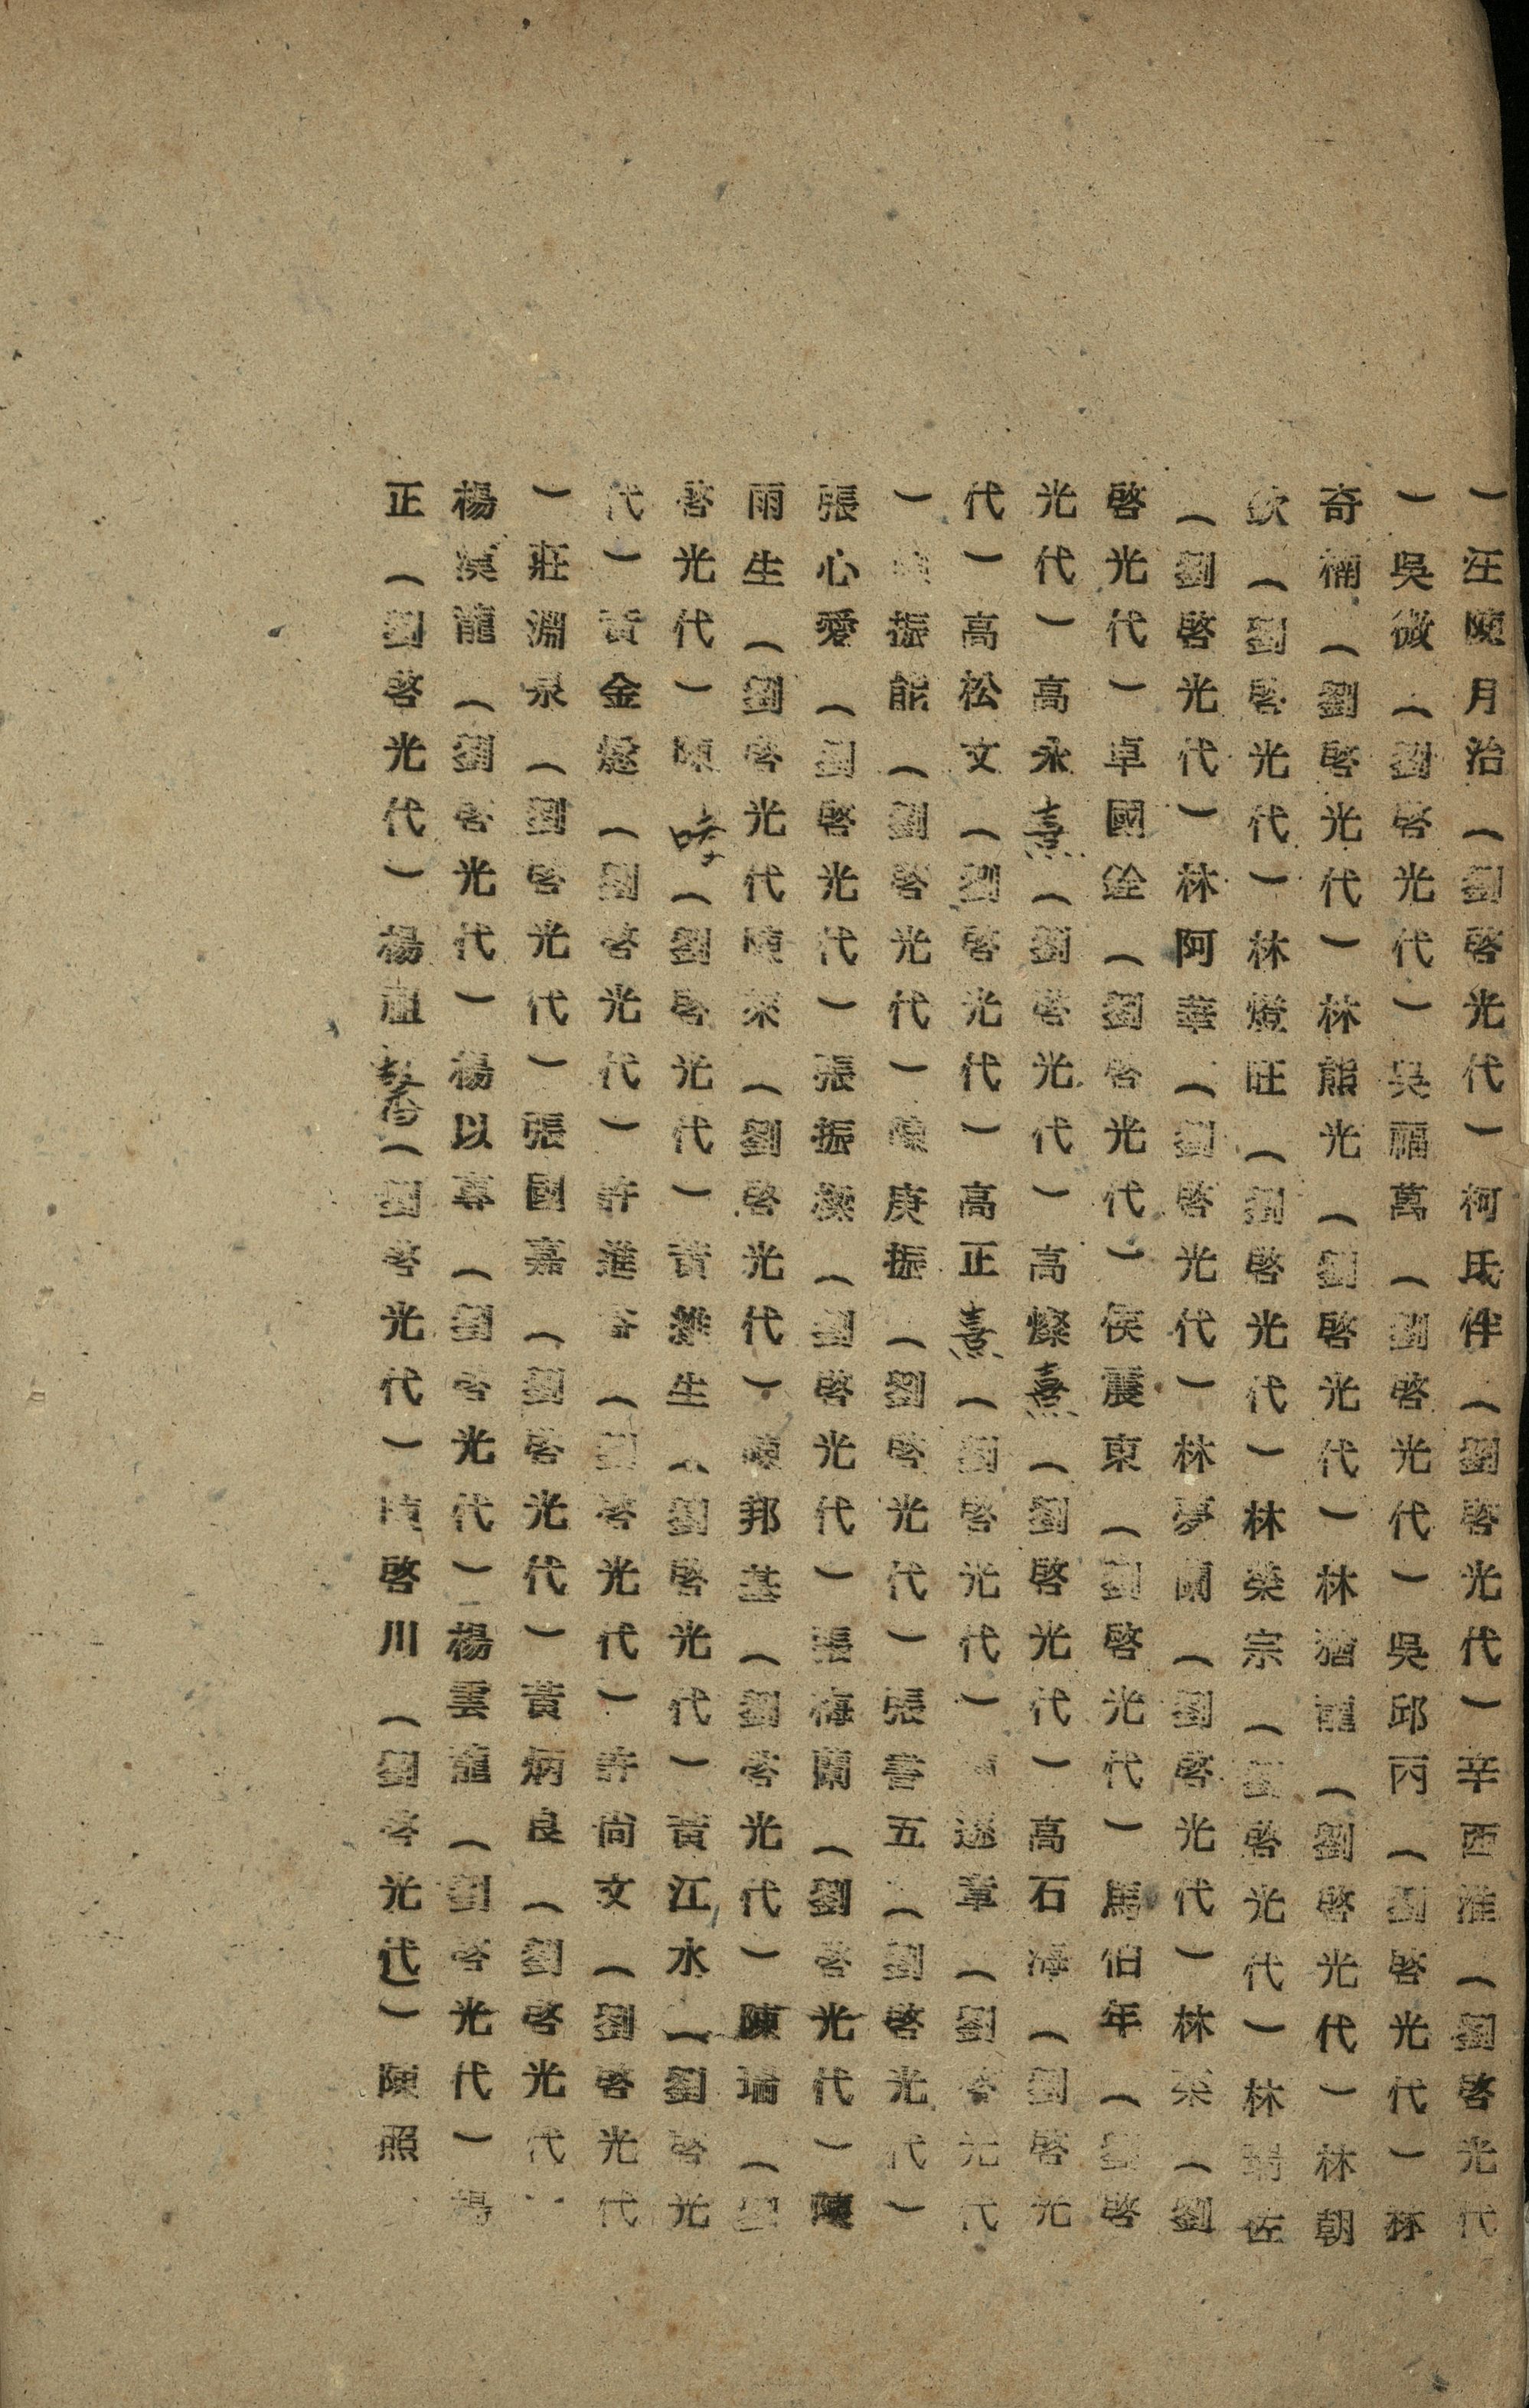 ）汪陳月治（劉啓光代）柯氏伴（劉啓光代）辛西淮（劉啓光代
）吳微（劉啓光代）吳福萬（劉啓光代）吳邱丙（劉啓光代）林
奇楠（劉啓光代）林熊光（劉啓光代）林猶龍（劉啓光代）林朝
欽（劉啓光代）林燈旺（劉啓光代）林榮宗（劉啓光代）林瑞佐
（劉啓光代）林阿華（劉啓光代）林夢蘭（劉啓光代）林榮（劉
啓光代）卓國銓（劉啓光代）侯震東（劉啓光代）馬伯年（劉啓
光代）高永熹（劉啓光代）高燦熹（劉啓光代）高石海（劉啓光
代）高松文（劉啓光代）高正熹（劉啓光代）遜章（劉啓光代
）振能（劉啓光代）陳庚振（劉啓光代）張書五（劉啓光代）
張心愛（劉啓光代）張振樑（劉啓光代）張梅蘭（劉啓光代）陳
雨生（劉啓光代陳榮（劉啓光代）陳邦基（劉啓光代）陳瑞（劉
啓光代）陳（劉啓光代）黃生（劉啓光代）黃江水（劉啓光
代）黃金（劉啓光代）許進（劉啓光代）許尚文（劉啓光代
）莊淵泉（劉啓光代）張國嘉（劉啓光代）黃炳良（劉啓光代）
楊漢龍（劉啓光代）楊以專（劉啓光代）楊雲龍（劉啓光代）楊
正（劉啓光代）楊（劉啓光代）陳啓川（劉啓光代）陳照